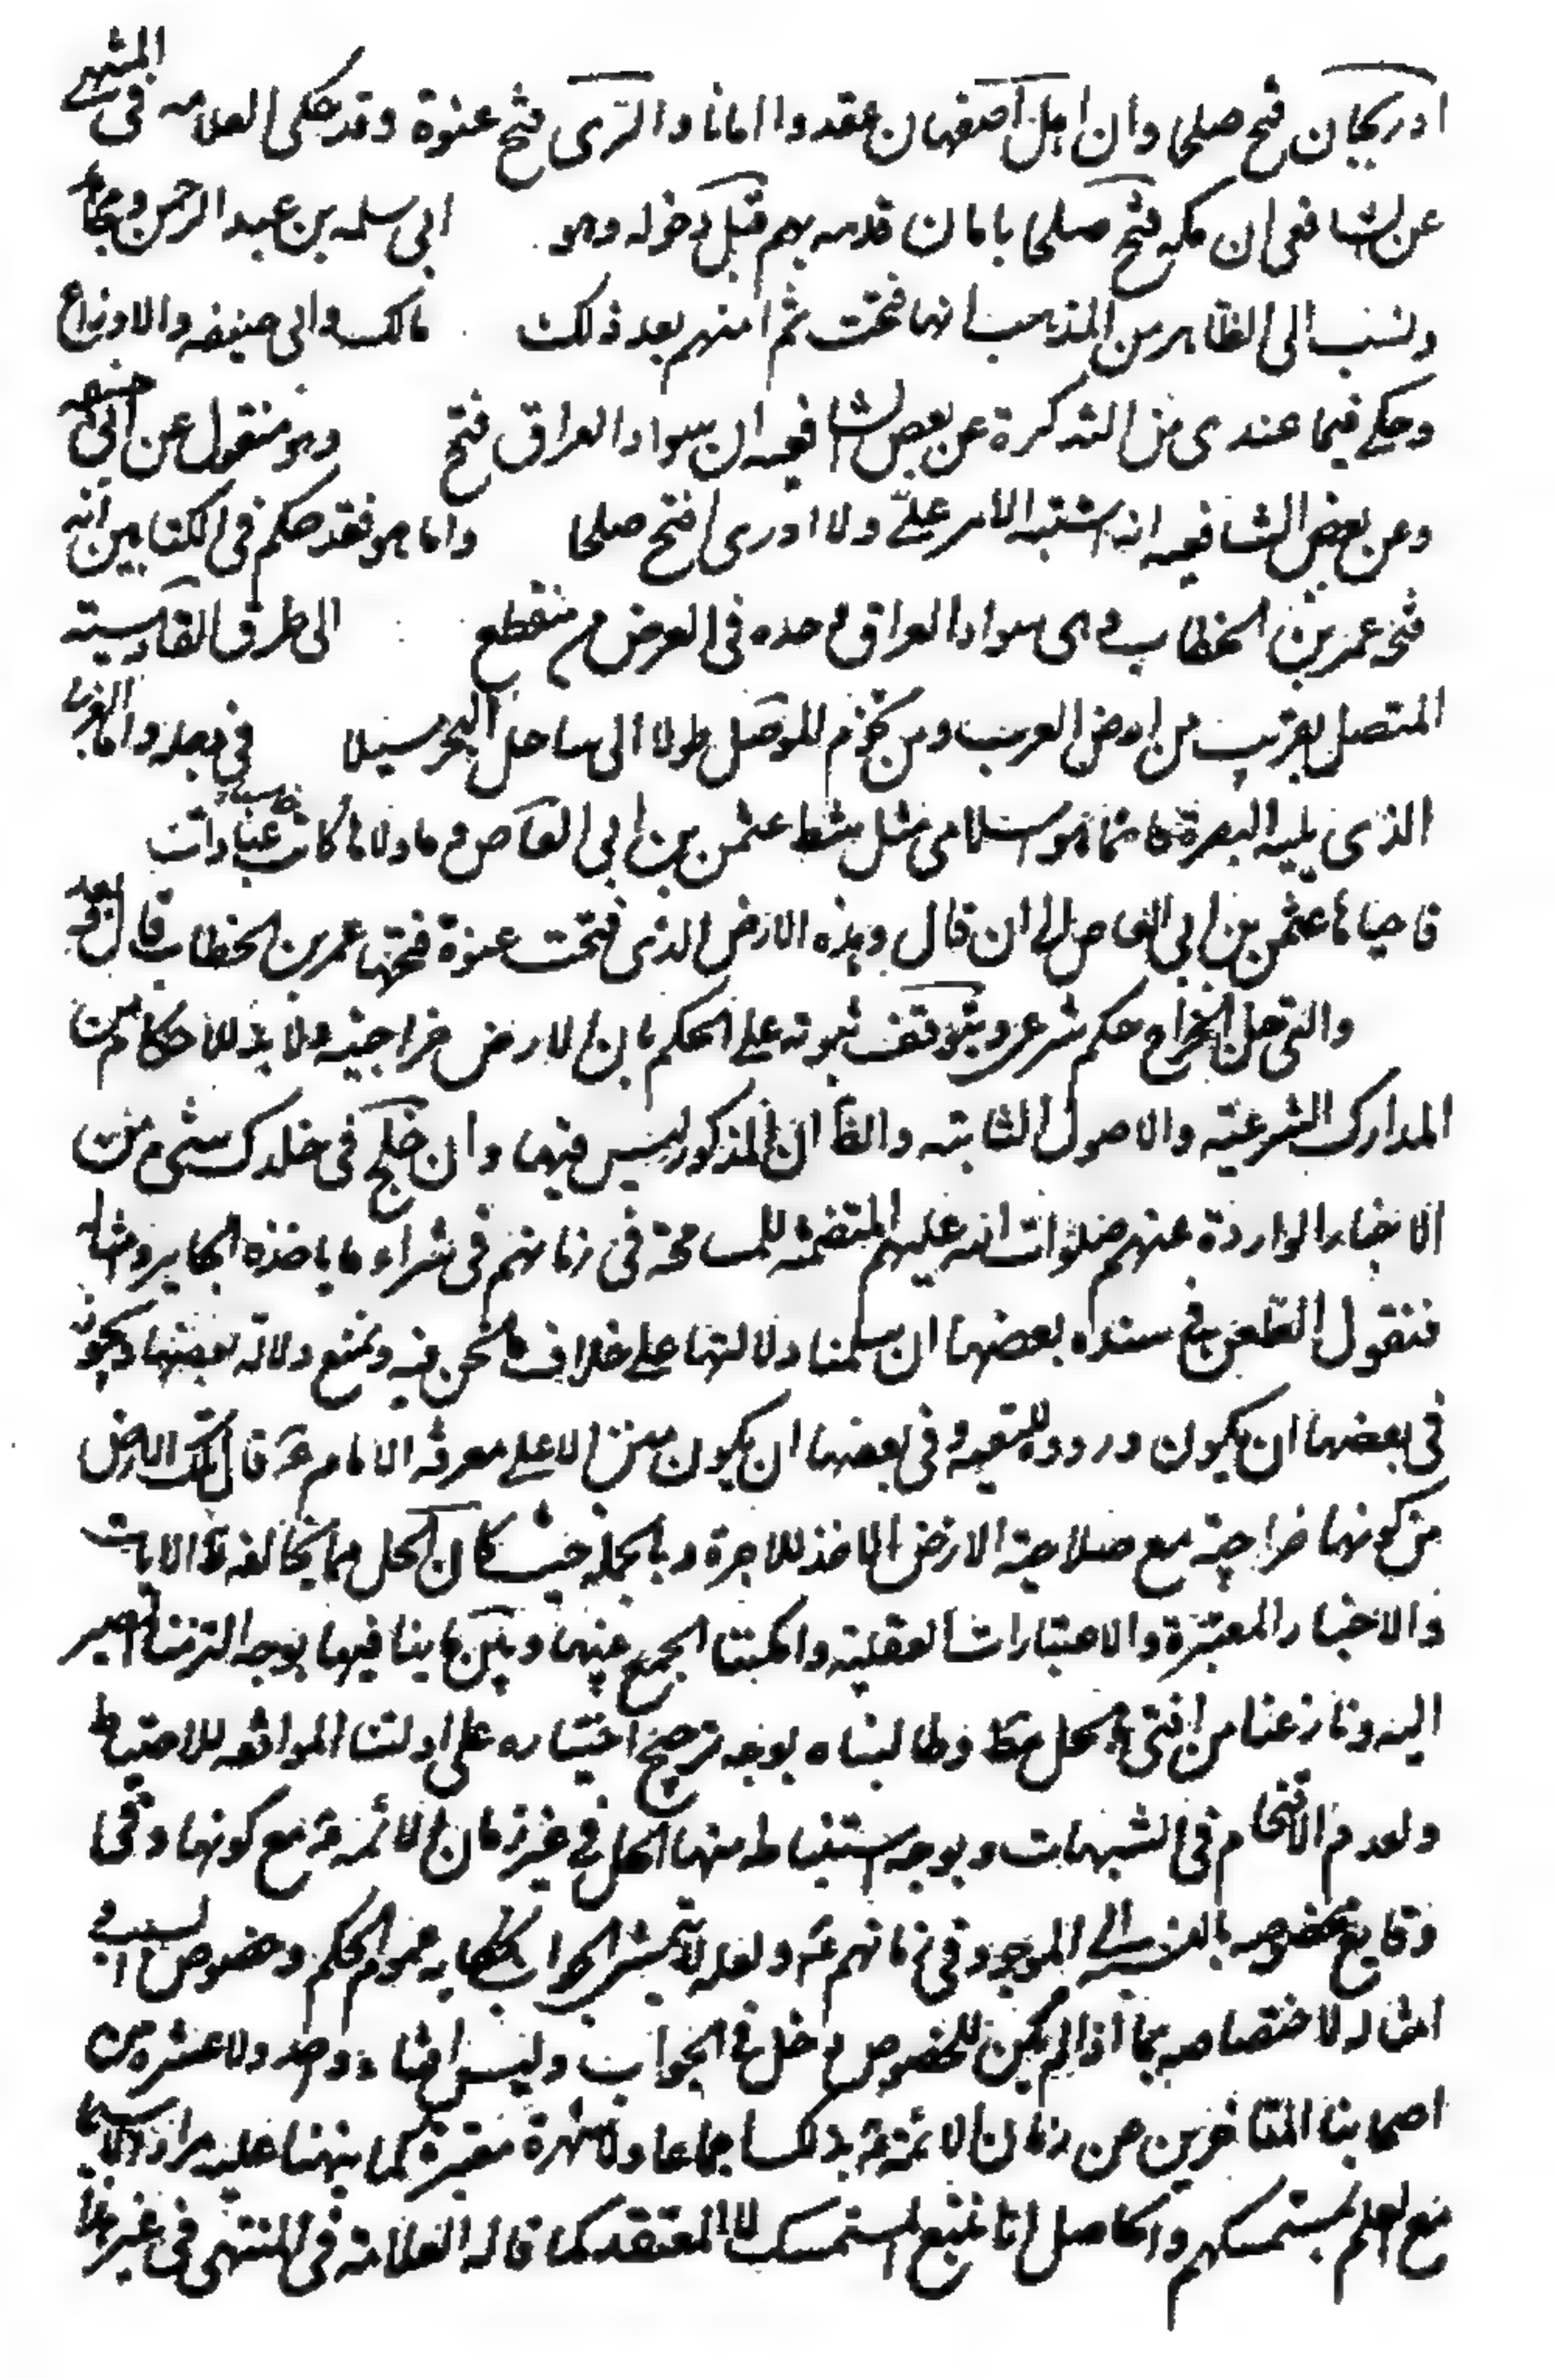 ادربيجان فتح صلحا وان اهل اصفهان عقدوا امانا والرى فتح عنوة وقد حكى العلامه فى المنتهى
عن الشافعى ان مكه فتح صلحا بامان قدمه لهم قبل دخوله وهو ابى سلمه بن عبد الرحمن ومجاهد
ونسب الى الظاهر من المذهب انها فتحت ثم امنهم بعد ذلك مالك وابى حنيفه والاوزاعى
وحكى فيما عندى من التذكرة عن بعض الشافعيه ان سواد العراق فتح وهو منقول عن ابى حنيفه
وعن بعض الشافعيه انه اشتبه الامر على ولا ادرى افتح صلحا واما هو فقد حكم فى الكتابين انه
فتح عمر بن الخطاب وهى سواد العراق وحده فى العرض من منقطع الى طرق القادسية
المتصل بعذيب من ارض العرب ومن تخوم الموصل طولا الى ساحل البحر ميلا فى بعد واما الغربى
الذى يليه البصرة فانما هو اسلامى مثل شط عثمن بن ابى العاص وما والاها كانت سباخا ومواتا
فاحياها عثمن بن ابى العاص الى ان قال وهذه الارض الذى فتحت عنوة فتحها عمر بن الخطاب قال بعد
والتى حل الخراج حكم شرعى ويتوقف ثبوته على الحكم بان الارض خراجية ولا بد للاحكام من
المدارك الشرعية والاصول الثابته والظا ان المذكور ليس فيها وان خلج فى خلدك شىء من
الاخبار الواردة عنهم صلوات الله عليهم المتضمنه للمسامحة فى زمانهم فى شراء ما ياخذه الجاير وامثاله
فنقول الطعن فى سند بعضها ان سلمنا دلالتها على خلاف ما نحن فيه ونمنع دلاله بعضها ويجوز
فى بعضها ان يكون وروده للتقيه وفى بعضها ان يكون منزلا على معرفه الامام ع قال تلك الارض
من كونها خراجية مع صلاحية الارض الماخذ للاجرة وبالجمله حيث كان الحل مما يخالفه ظ الايات
والاخبار المعتبرة والاعتبارات العقلية وامكننا الجمع بينها وبين ما ينافيها بوجه الزمنا المصير
اليه ونازعنا من افتى بالحل مط وطالبناه بوجه ترجيح اختياره على ادلتنا الموافقه للاحتياط
ولعدم الاقتحام فى الشبهات وبوجه استنباط منها الحل فى غير زمان الائمة ع مع كونها وقعى
وقايع مخصوصه بالنسبة الى الموجود فى زمانهم ع ولعله لا يتمشى الجواب بكفايه عموم الحكم وخصوص السبب فى
امثاله لاختصاصه بما اذا لم يكن للخصوص دخل فى الجواب وليس افتاء واحد ولا عشره من
اصحابنا المتاخرين عن زمان الائمة ع بذلك اجماعا ولا شهرة معتبرة كما نبهنا عليه مرارا ولا سيما
مع العلم بمستمسكهم والحاصل انا نتبع المستمسك لا المعتقد كما قاله العلامة فى المنتهى فى غير هذا